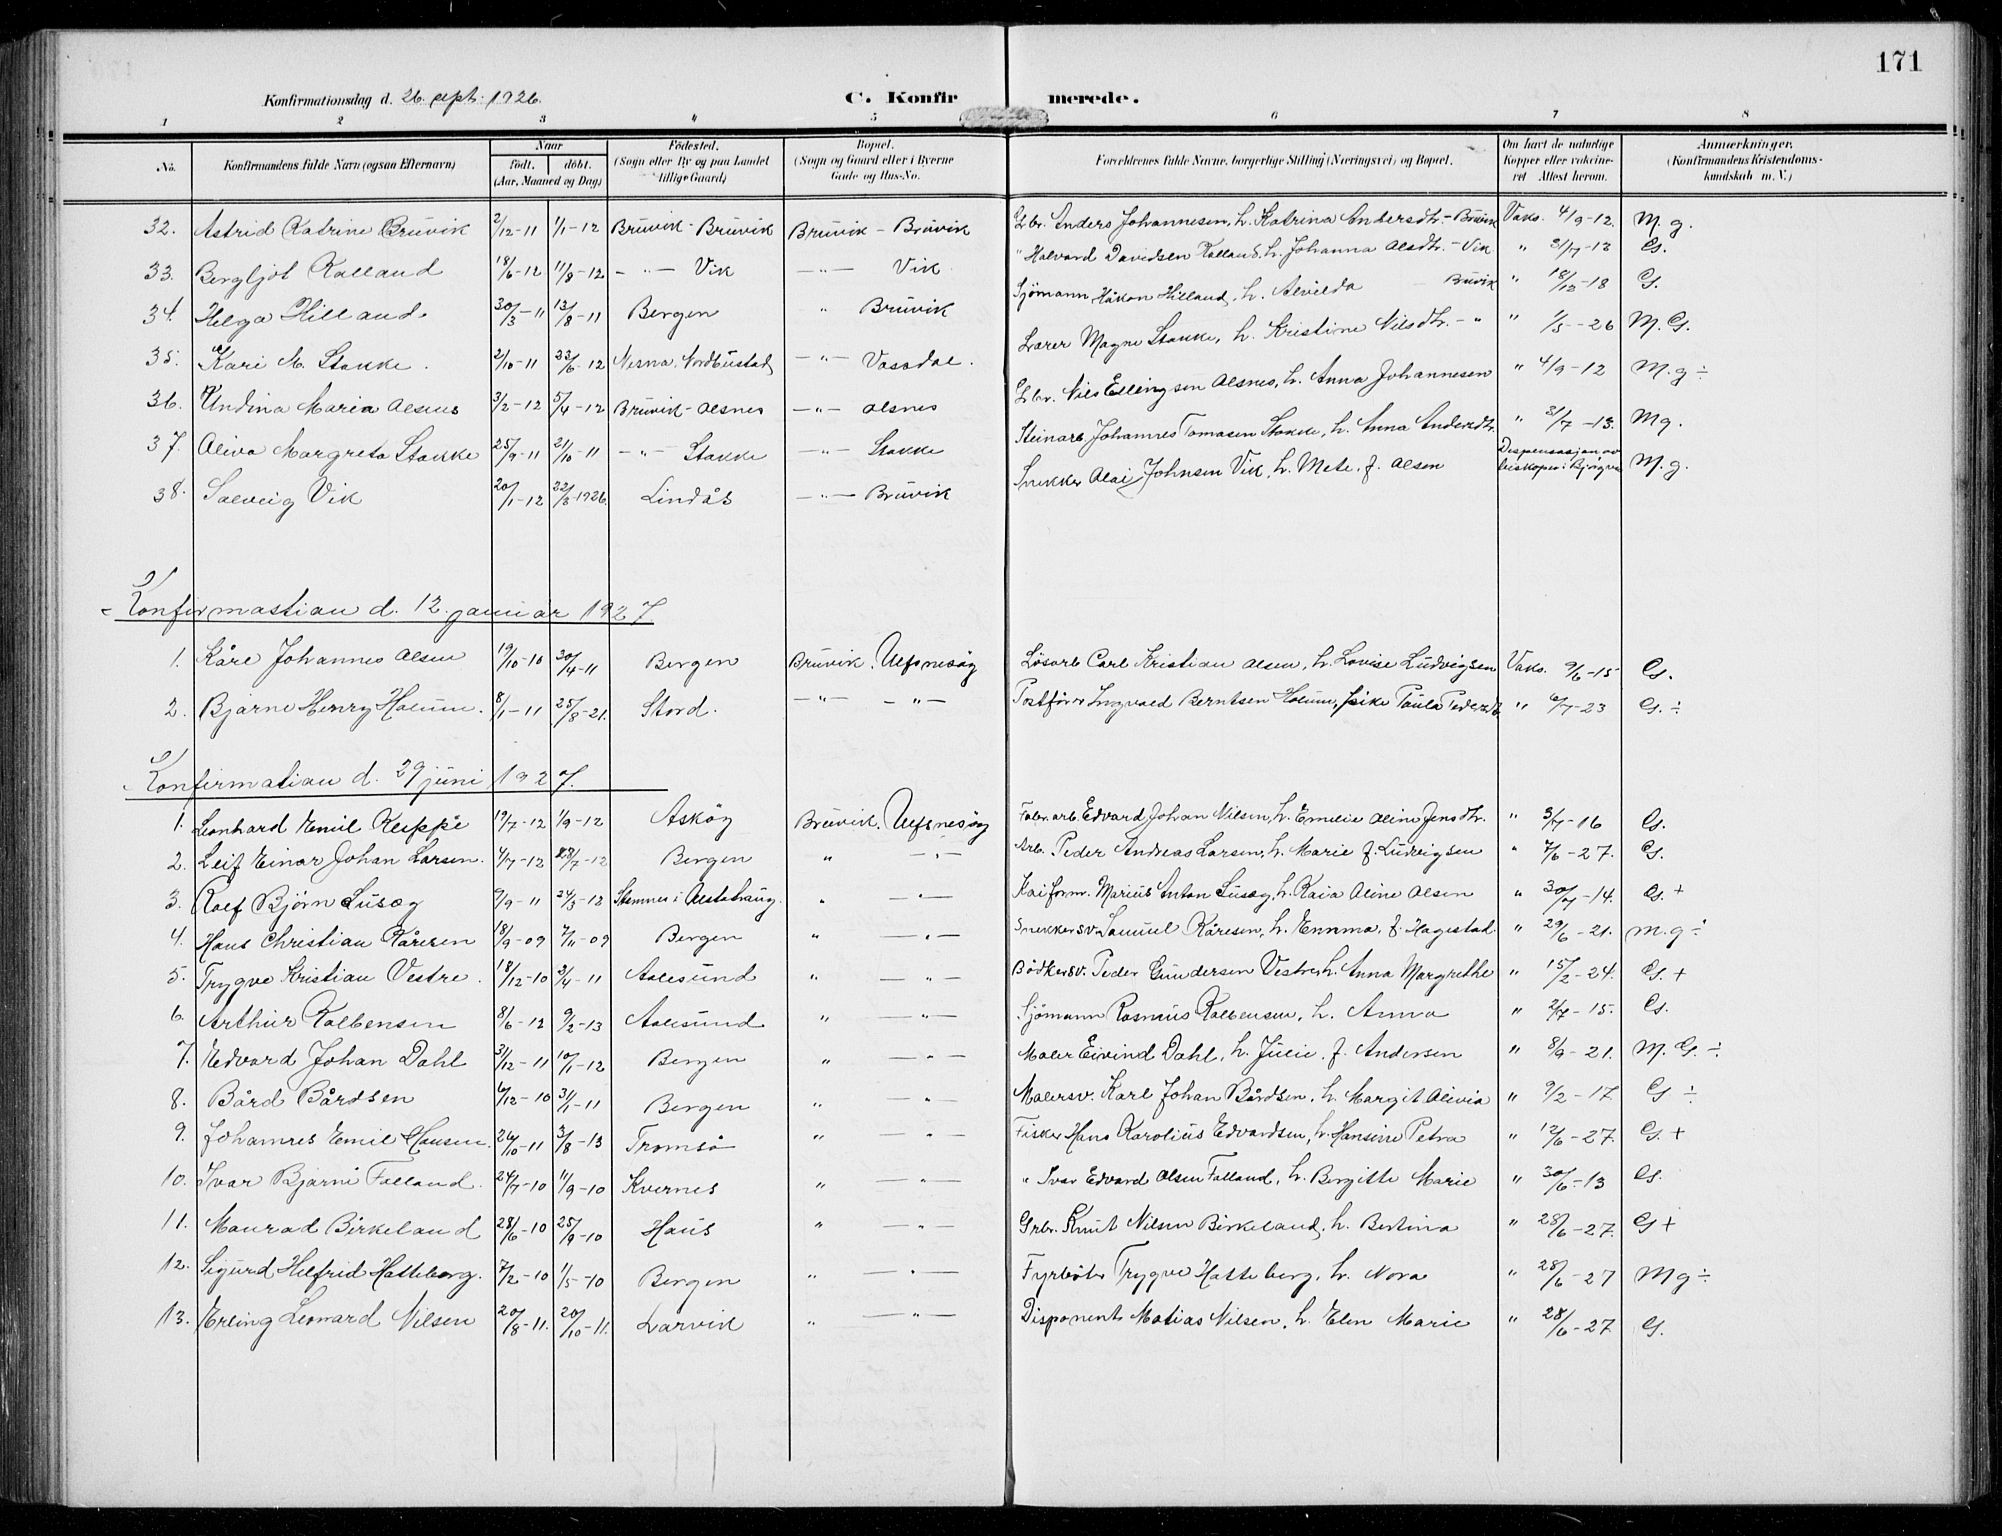 171
Konfirmationsdag d. 26. sept. 1926. C. Konfirmerede.
1 2 3 4 5 6 7 8
No. Konfirmandens fulde Navn (ogsaa Efternavn) Naar født. døbt. (Aar, Maaned og Dag) Fødested. (Sogn eller By og paa Landet tillige Gaard) Bopæl. (Sogn og Gaard eller i Byerne Gade og Hus-No. Forældrenes fulde Navne, borgerlige Stilling (Næringsvei) og Bopæl. Om havt de naturlige Kopper eller vakcineret. Attest herom. Anmærkninger. (Konfirmandens Kristendomskundskab m. V.)
32. Astrid Katrine Bruvik 2/12-11 1/1-12 Bruvik - Bruvik Bruvik - Bruvik Gbr. Anders Johannesen, h. Katrina Andersdtr. - Bruvik Vaks. 4/9-12. M. g.
33. Bergljot Kalland 18/6-12 11/8-12 - " - Vik - " - Vik " Halvard Davidsen Kalland, h. Johanna Olsdtr. - Vik " 31/7-13 G.
34. Helga Hilland 30/3-11 13/8-11 Bergen " Bruvik Sjömann Håkon Hilland, h. Alvilda Bruvik " 18/12-18 G.
35. Kari M. Stakke. 2/10-11 23/6-12 Nesna, Nordbustad - " - Vassdal. Lærer Magne Stakke, h. Kristine Nilsdtr. - " " 1/5-26 M. G.
36. Undina Maria Olsnes 3/2-12 5/4-12 Bruvik - Olsnes - " - Olsnes Gbr. Nils Ellingsen Olsnes, h. Anna Johannesen " 4/9-12 M. g ÷
37. Oliva Margreta Stakke 25/9-11 21/10-11 - " - Stakke - " - Stakke Steinarb. Johannes Tomasen Stakke, h. Anna Andersdtr. " 31/7-13. Mg.
38. Solveig Vik 20/1-12 22/8-1926. Lindås - " - Bruvik Snekker Olai Johnsen Vik, h. Mete, f. Olsen Dispensasjon av biskopen i Bjørgvin M. g.
Konfirmastian d. 12. januar 1927
1. Kåre Johannes Olsen 19/10-10 30/4-11 Bergen Bruvik. Ulfsnesøy Lösarb Carl Kristian Olsen, h. Lovise Ludvigsen Vaks. 9/6-15 G.
2. Bjarne Henry Holum. 8/1-11 25/8-21. Stord. - " - - " - Postförer Ingvald Berntsen Holum, Paula Pedersdtr " 6/7-23 G. ÷
Konfirmatian d. 29 juni 1927.
1. Leonhard Emil Kleppe 19/7-12 1/9-12 Asköy Bruvik. Ulfsnesöy Fabr. arb Edvard Johan Nilsen, h. Emelie Oline Jensdtr. " 3/7-16 G.
2. Leif Einar Johan Larsen. 4/7-12 28/7-12 Bergen " - " - Arb. Peder Andreas Larsen, h. Marie f. Ludvigsen " 7/6-27. G.
3. Rolf Bjørn Lusæg 9/9-11 24/3-12 Stamnes i Alstahaug. " - " - Kaiform. Marius Anton Lusæg, h. Kaia Oline Olsen " 30/7-14. G. +
4. Hans Christian Kåresen 18/9-09 7/11-09 Bergen " - " - Snekkersv. Samuel Kåresen, h. Emma, f. Hagestad " 29/6-21. M. g ÷
5. Trygve Kristian Vestre. 18/12-10 2/4-11 Aalesund " - " - Bödkersv. Peder Gundersen Vestre, h. Anna Margrethe " 15/2-24. G. +
6. Arthur Kolbensen 8/6-12 9/2-13 Aalesund " - " - Sjömann Rasmus Kolbensen, h. Anna " 2/7-15. G.
7. Edvard Johan Dahl 31/12-11 10/1-12 Bergen " - " - Maler Eivind Dahl, h. Julie, f. Andersen " 8/9-21. M. G. ÷
8. Bård Bårdsen 4/12-10 31/1-11 Bergen " - " - Malersv. Karl Johan Bårdsen, h. Margit Olivia " 9/2-17. G ÷
9. Johannes Emil Hansen. 24/10-11 3/8-13 Tromsö " - " - Fisker Hans Karolius Edvardsen, h. Hansine Petra " 12/6-27. G. +
10. Ivar Bjarne Folland. 24/7-10 11/9-10 Kvernes " - " - " Ivar Edvard Olsen Folland, h. Bergitte Marie " 30/6-13 G.
11. Monrad Birkeland 28/6-10 25/9-10 Haus " - " - Grbr. Knut Nilsen Birkeland, h. Bertina " 28/6-27. G +
12. Sigurd Hilfrid Hatteberg. 7/2-10 1/5-10 Bergen " - " - Fyrböter Trygve Hatteberg, h. Nora " 28/6-27 Mg ÷
13. Erling Leonard Nilsen 20/8-11. 20/10-11. Larvik " - " - Disponent Matias Nilsen, h. Elen Marie " 28/6-27 G.